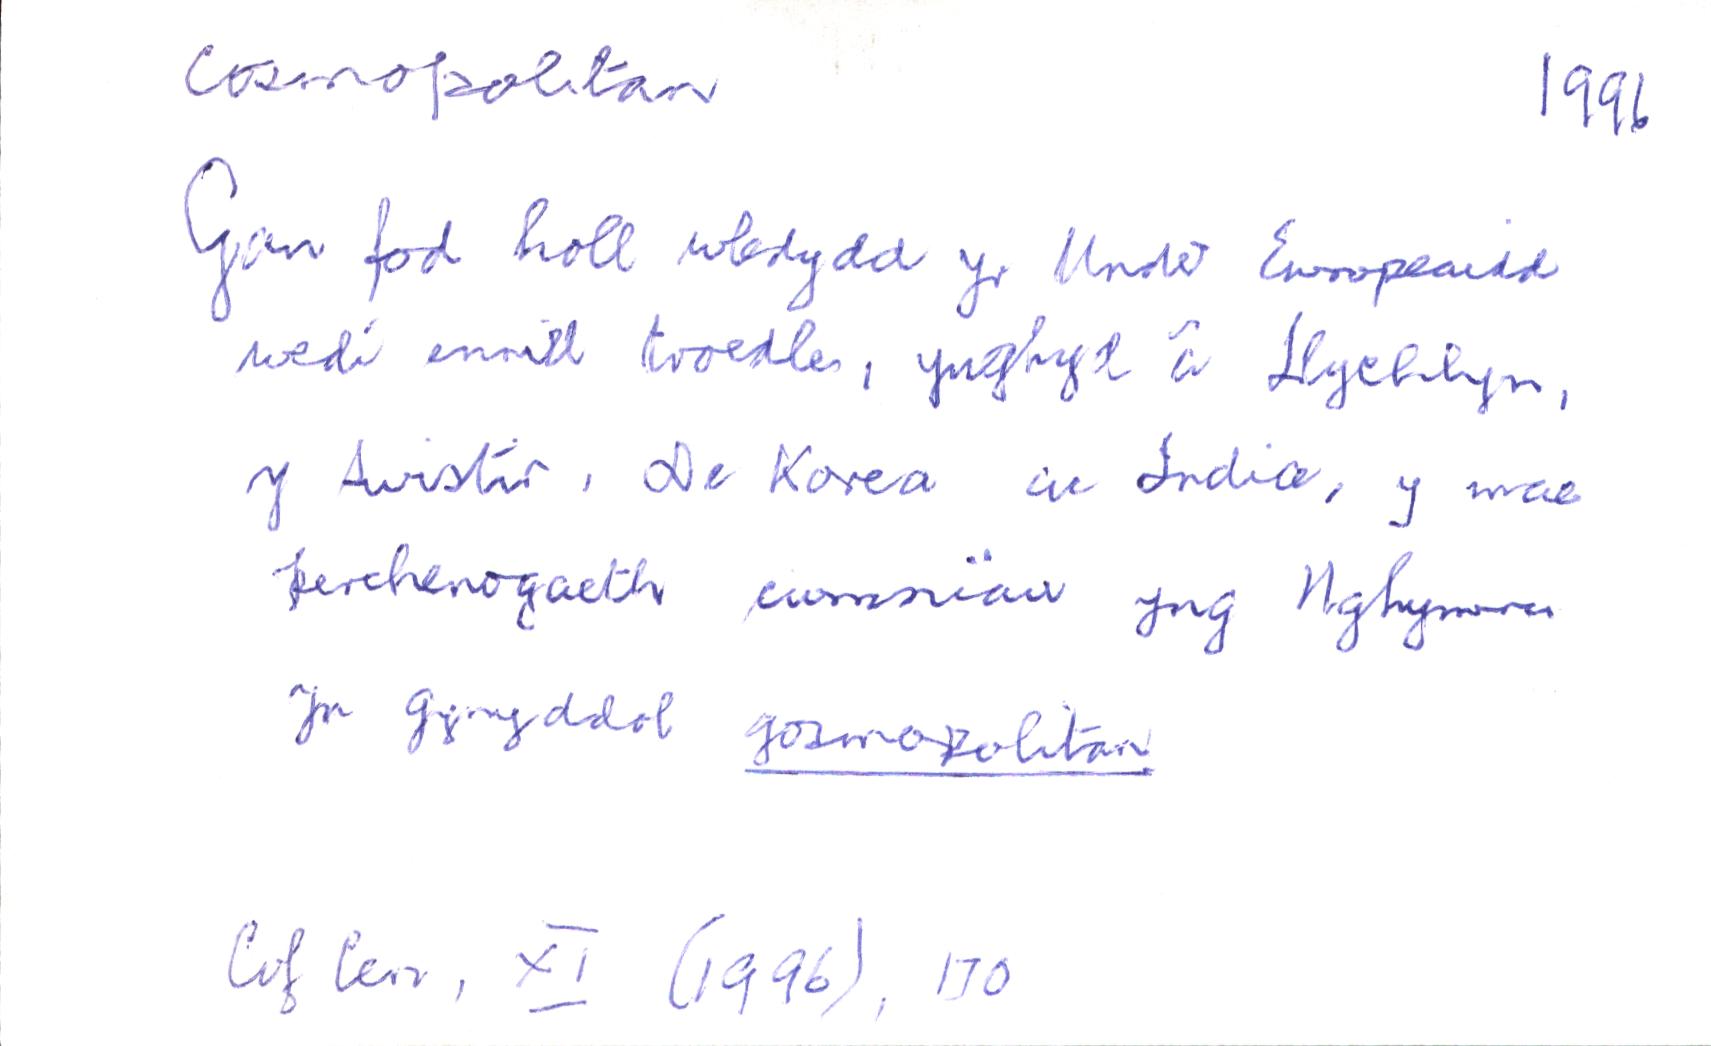 cosmopolitan 1996
Gan fod holl wledydd yr Undeb Ewropeaidd
wedi ennill troedle, ynghyd â Llychlyn,
y Swistir, De Korea ac India, y mae
perchenogaeth cwmnïau yng Nghymru
yn gynyddol gosmopolitan
Cof Cen, XI (1996), 170